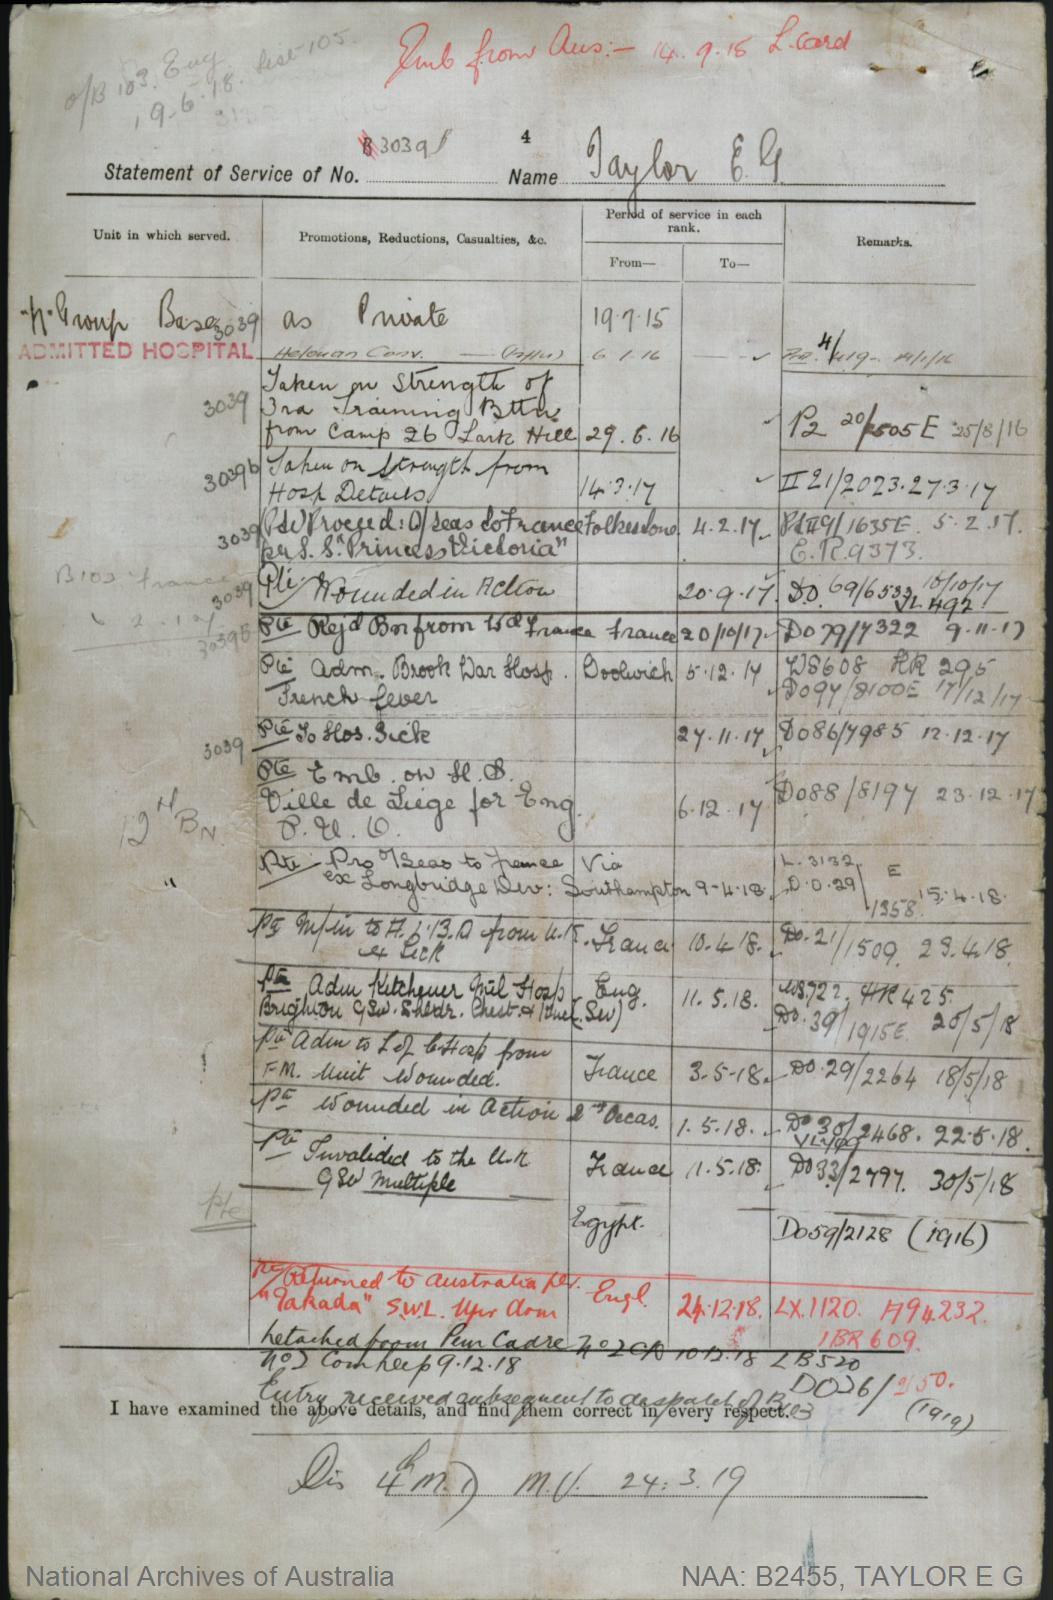 Emb from Aus:- 14.9.15 L. Card
o/B 103. Eng List 105.
19.6.18.
3039B
4
Statement of Service of No. Name Taylor E. G.
Unit in which served.
Promotions, Reductions, Casualties, &c.
Period of service in each rank.
From—
To—
Remarks.
Group Base 3039 as Private 19.7.15
ADMITTED HOSPITAL Helouan Conv. 6.1.16
3039
Taken on Strength of
3rd Training Bttn
from Camp 26 Lark Hill 29.6.16 P2 20/2505E 25/8/16
3039b Taken on Strength from
Hosp Details 14.3.17 II 21/2023. 27.3.17
3039 Pte Proceed: O/Seas to France Folkestone 4.2.17. 9/1635E 5.2.17.
per S.S. "Princess Victoria" E.R.9373.
B103 France
3039 Pte Wounded in Action 20.9.17. DO 69/6533 10/10/17
VL 492
3039B Pte Rej'd Bn from W'd France France 20/10/17. DO 79/7322 9.11.17
Pte Adm. Brook War Hosp. Woolwich 5.12.17 WS608 HR 295
Trench fever DO 97/8100E 17/12/17
3039 Pte To Hos. Sick 27.11.17 DO 86/7985 12.12.17
Pte Emb. on H.S.
Ville de Liege for Eng 6.12.17 DO 88/8197 23.12.17
P. U. O.
12th BN.
Pte Pro O/Seas to France Via L.3132
ex Longbridge Dev: Southampton 9-4-18. D.O.29/1358 E 15.4.18.
Pte M/in to A.I.B.D from U.K. France 10.4.18. DO.21/1509. 23.4.18.
ex Sick
Pte Adm Kitchener Mil Hosp Eng. 11.5.18. WS722. HR425
Brighton GSW. Shldr. Chest & (Sev) DO.39/1915E. 20/5/18
Pte Adm to C Hosp from
F.M. Unit Wounded. France 3.5.18. DO.29/2264 18/5/18
Pte Wounded in Action 2nd Occas. 1.5.18. DO 30/2468. 22.5.18.
Pte Invalided to the U.K France 11.5.18. DO 33/2797. 30/5/18
GSW Multiple
Pte
Egypt. DO 59/2128 (1916)
Pte Returned to Australia per Engl. 24.12.18. LX.1120. H94232.
"Takada" 1BR 609.
Detached from Perm Cadre No 2 CD 10.12.18 LB520
No 2 Com Dep 9.12.18 DO26/250.
Entry received subsequent to despatch of B103 (1919)
I have examined the above details, and find them correct in every respect.
Dis 4th M.D M.U. 24.3.19
National Archives of Australia
NAA: B2455, TAYLOR E G